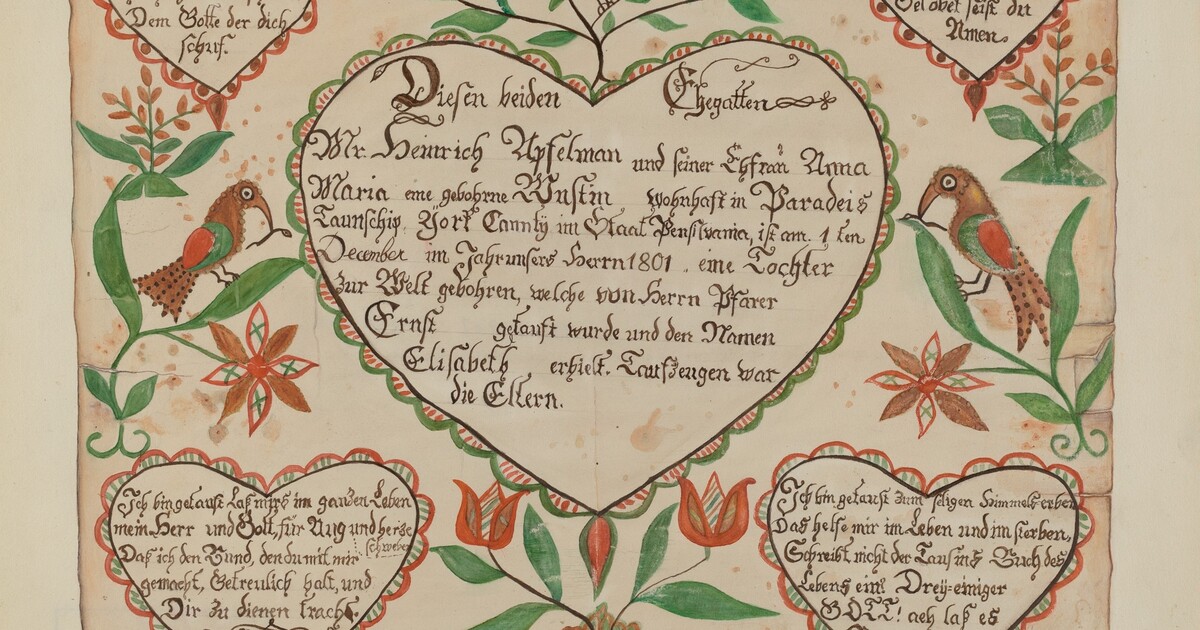 Dem Gotte der dich
schuf.
Gelobet seist du
Amen.
Diesen beiden Ehegatten
Mr. Heinrich Apfelman und seiner Ehfrau Anna
Maria eine gebohrne Wustin wohnhaft in Paradeis
Taunschip York Caunty im Staat Pensilvania, ist am 1 ten
December im Jahr unsers Herrn 1801. eine Tochter
zur Welt gebohren, welche von Herrn Pfarer
Ernst getauft wurde und den Namen
Elisabeth erhielt. Taufzeugen war
die Eltern.
Ich bin getauft laß mirs im ganzen Leben
mein Herr und Gott, für Aug und herze
schweben
Daß ich den Bund, den du mit mir
gemacht, Getreulich halt, und
Dir zu dienen tracht.
Ich bin getauft zum seligen Himmels erben
Das helfe mir im Leben und im sterben,
Schreibt nicht der Tauf ins Buch des
Lebens ein! Drey=einiger
GOTT! ach laß es